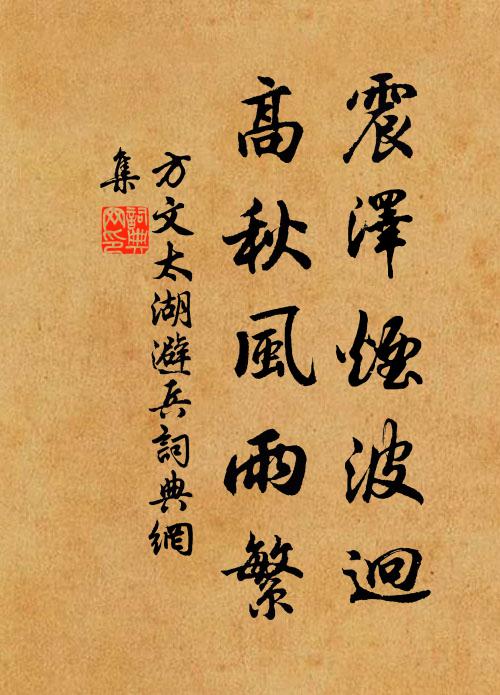 震澤煙波迥
高秋風雨繁
方文太湖避兵詞典網
集
詞典
网印